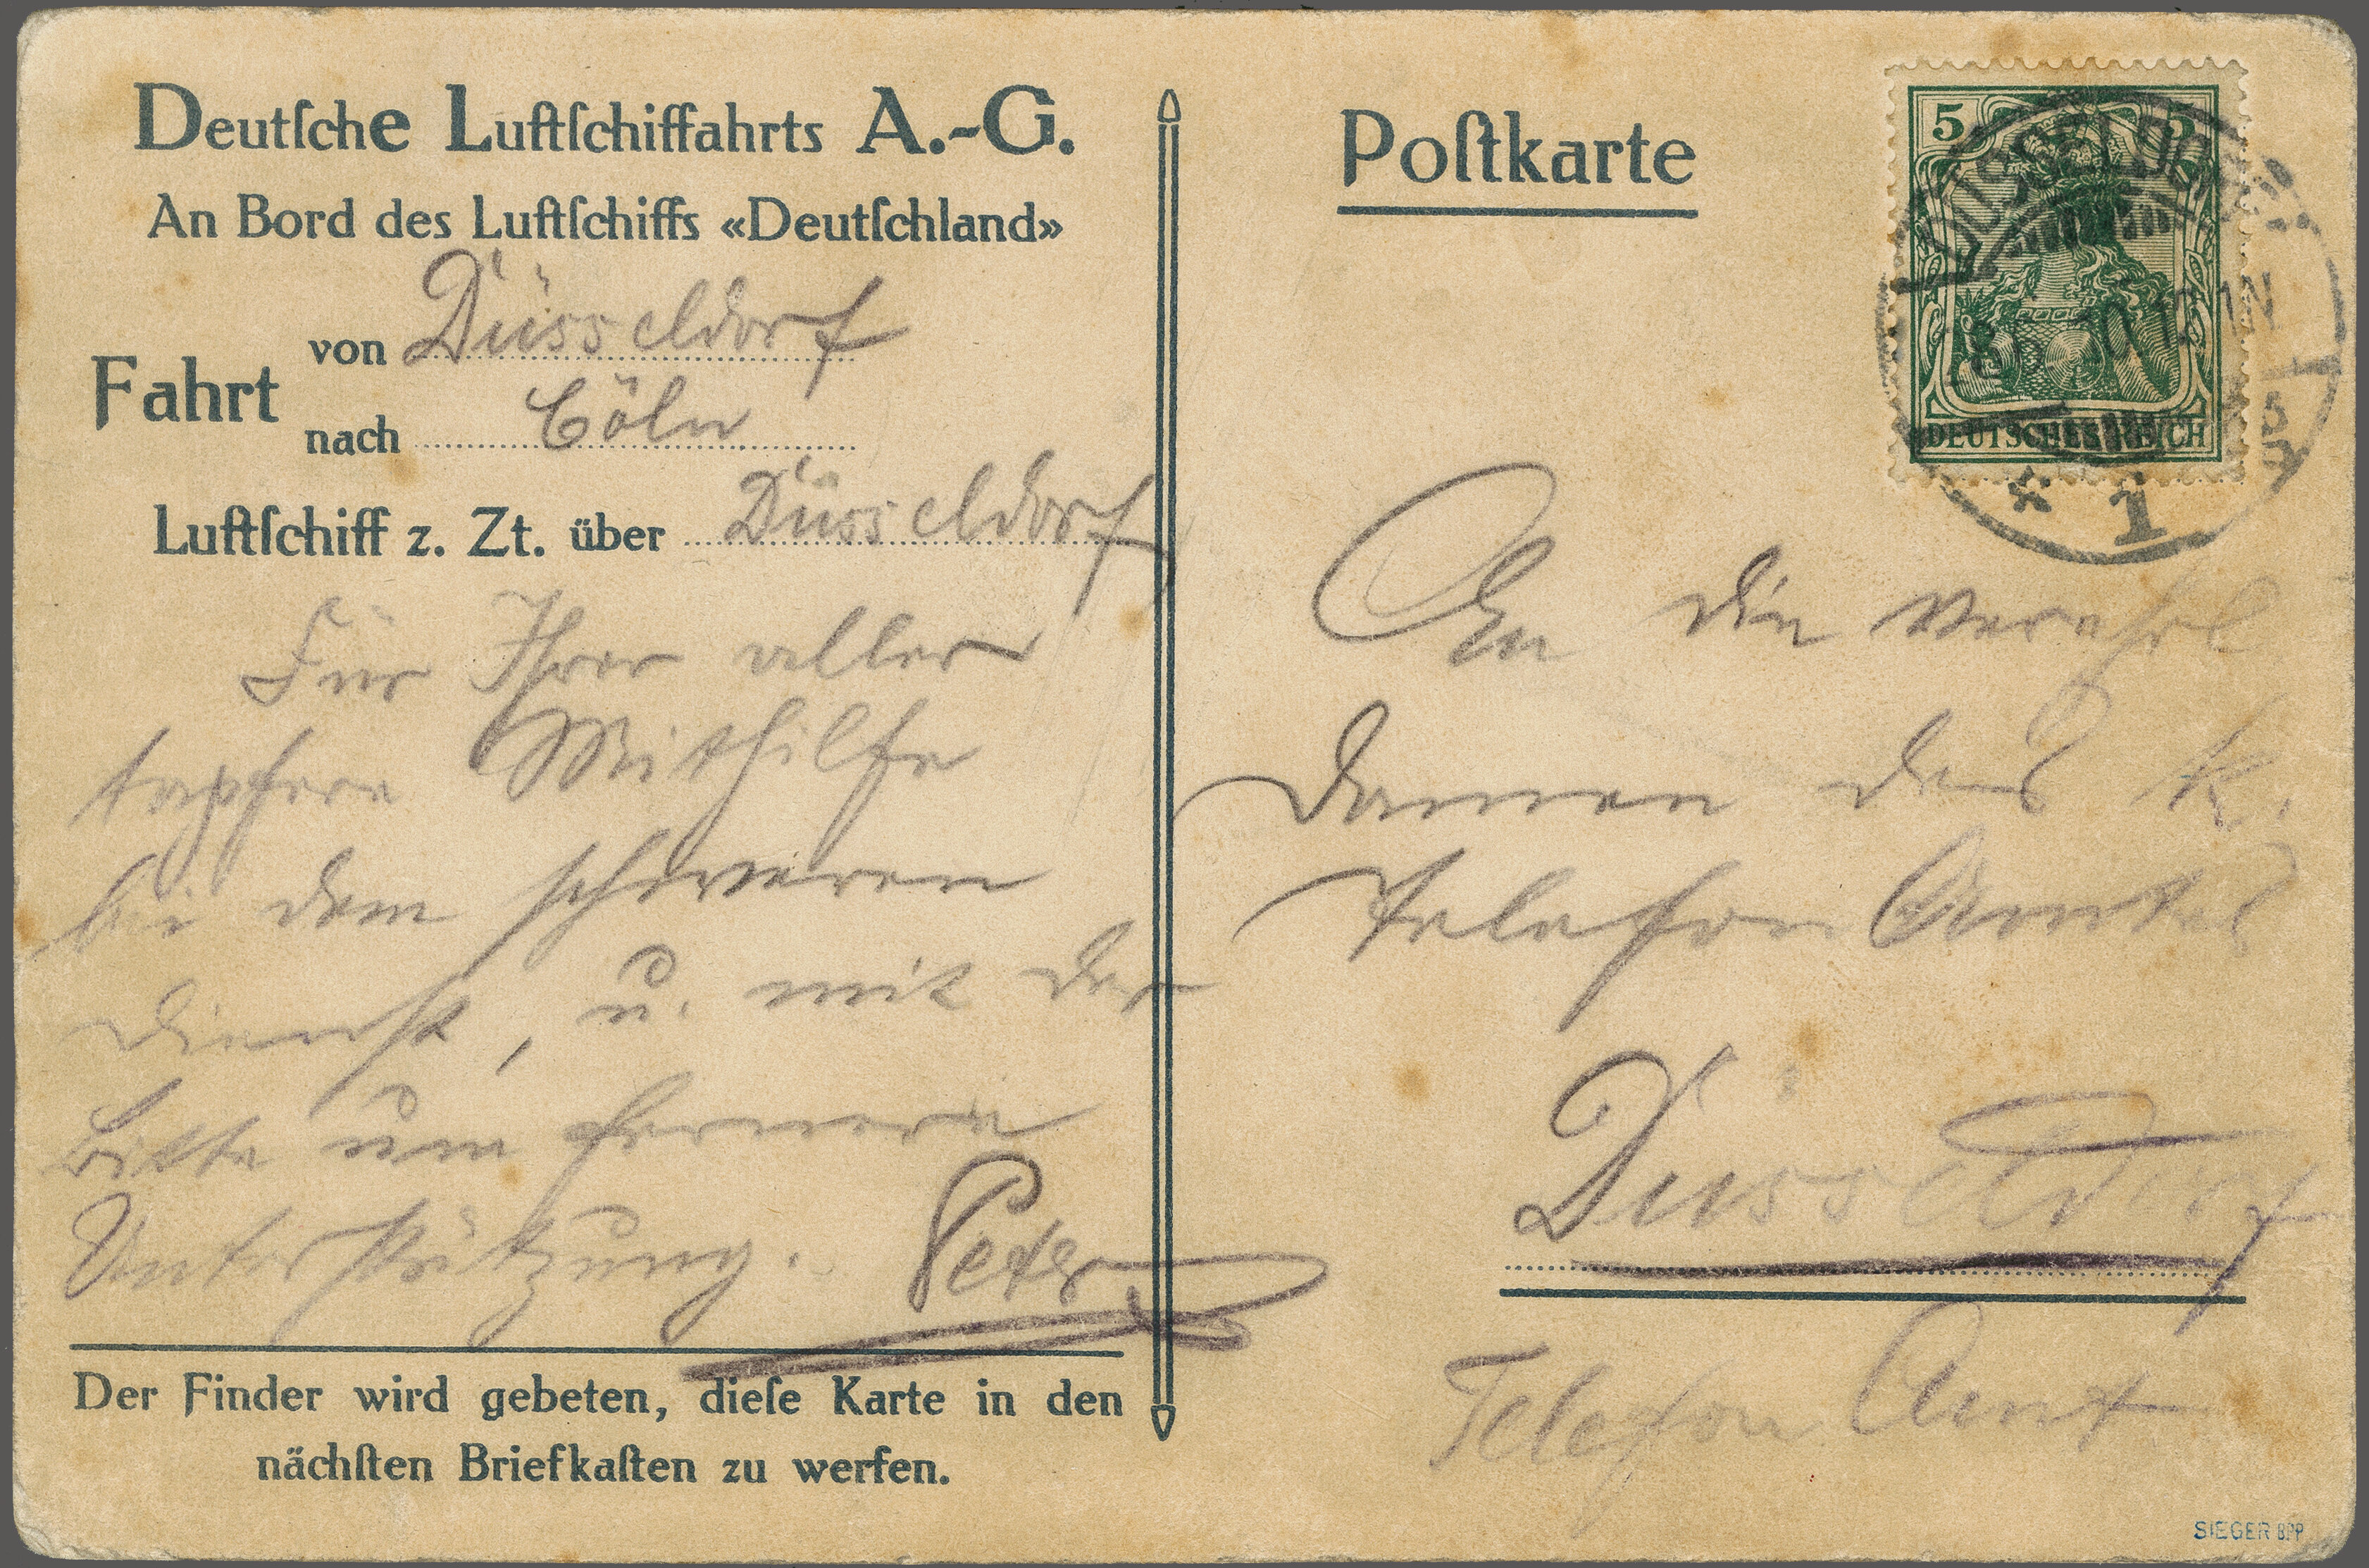 Deutſche Luftſchiffahrts A.-G.
An Bord des Luftſchiffs «Deutſchland»
Fahrt von Düsseldorf
nach Cöln
Luftſchiff z. Zt. über Düsseldorf
Für Ihrer aller
tapfere Mithilfe
bei dem schweren
Dienst, u. mit der
Bitte um fernere
Unterstützung. Peter
Der Finder wird gebeten, dieſe Karte in den
nächſten Briefkaſten zu werfen.
Poſtkarte
5 5
DEUTSCHES REICH
DÜSSELDORF
10 12-1N
* 1
An die verehrl
Damen des K.
Telefon Amtes
Düsseldorf
Telefon Amt
SIEGER BPP